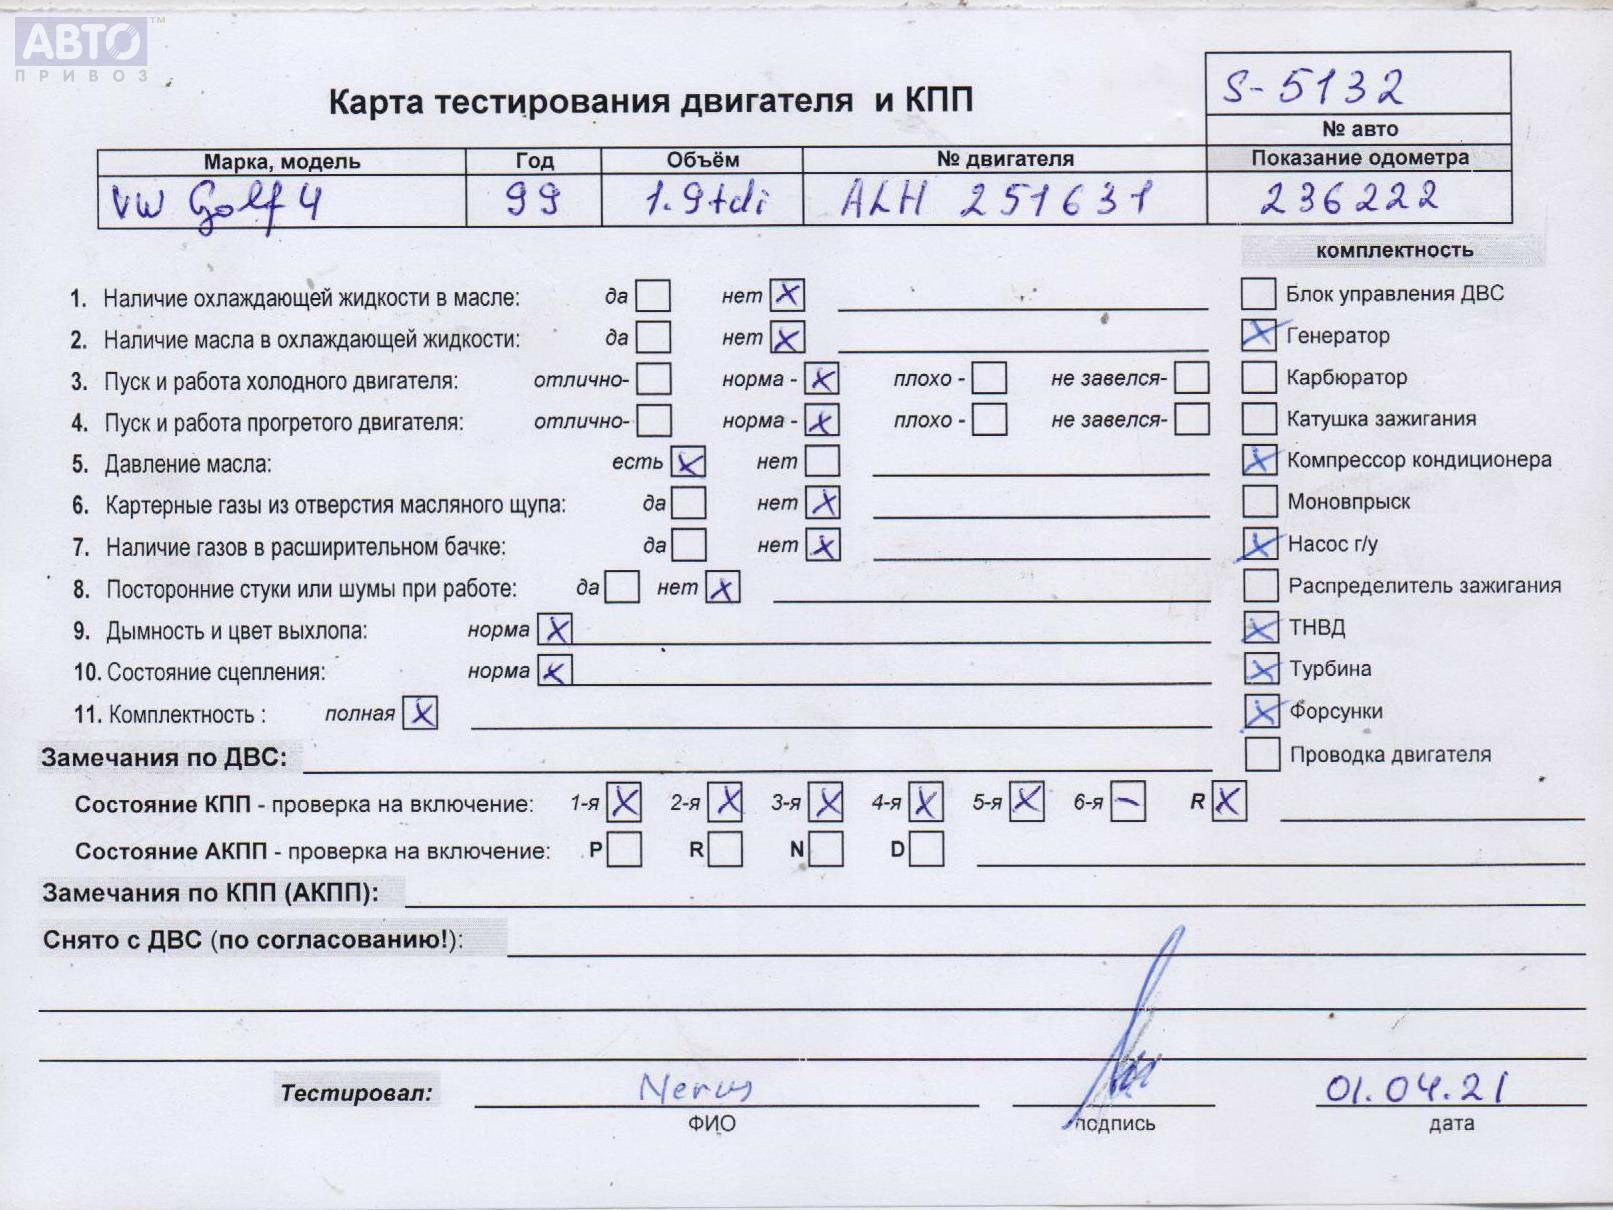 АВТО™
ПРИВОЗ
S-5132
Карта тестирования двигателя и КПП
№ авто
Марка, модель Год Объём № двигателя Показание одометра
VW Golf 4 99 1.9tdi ALH 251631 236222
комплектность
1. Наличие охлаждающей жидкости в масле: да нет X Блок управления ДВС
2. Наличие масла в охлаждающей жидкости: да нет X X Генератор
3. Пуск и работа холодного двигателя: отлично- норма - X плохо - не завелся- Карбюратор
4. Пуск и работа прогретого двигателя: отлично- норма - X плохо - не завелся- Катушка зажигания
5. Давление масла: есть X нет X Компрессор кондиционера
6. Картерные газы из отверстия масляного щупа: да нет X Моновпрыск
7. Наличие газов в расширительном бачке: да нет X X Насос г/у
8. Посторонние стуки или шумы при работе: да нет X Распределитель зажигания
9. Дымность и цвет выхлопа: норма X X ТНВД
10. Состояние сцепления: норма X X Турбина
11. Комплектность : полная X X Форсунки
Замечания по ДВС: Проводка двигателя
Состояние КПП - проверка на включение: 1-я X 2-я X 3-я X 4-я X 5-я X 6-я – R X
Состояние АКПП - проверка на включение: P R N D
Замечания по КПП (АКПП):
Снято с ДВС (по согласованию!):
Тестировал: 01.04.21
ФИО подпись дата